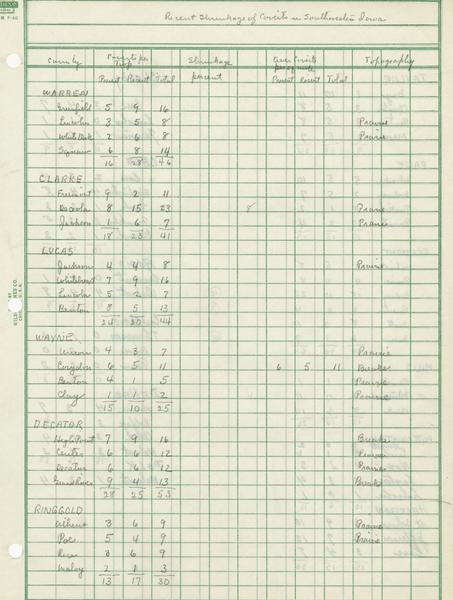 Recent Shrinkage of Covits in Southwestern Iowa
County per Twp Shrinkage Topography
percent per sq mile
Total Total
WARREN
Greenfield 5 9 16
Lincoln 3 5 8 Prairie
White Oak 2 6 8 Prairie
Squaw 6 8 14
16 28 46
CLARKE
Fremont 9 2 11
Osceola 8 15 23 8 Prairie
Jackson 1 6 7 Prairie
18 23 41
LUCAS
Jackson 4 4 8 Prairie
Whitebreast 7 9 16
Lincoln 5 2 7
Benton 8 5 13
24 20 44
WAYNE
4 3 7 Prairie
Corydon 6 5 11 6 5 11 Breaks
Benton 4 1 5 Prairie
Clay 1 1 2 Prairie
15 10 25
DECATOR
High Point 7 9 16 Breaks
Center 6 6 12 Prairie
Decatur 6 6 12 Prairie
Grand River 9 4 13 Breaks
28 25 53
RINGGOLD
Athens 3 6 9 Prairie
Poe 5 4 9 Prairie
Rice 3 6 9
Maloy 2 1 3
13 17 30